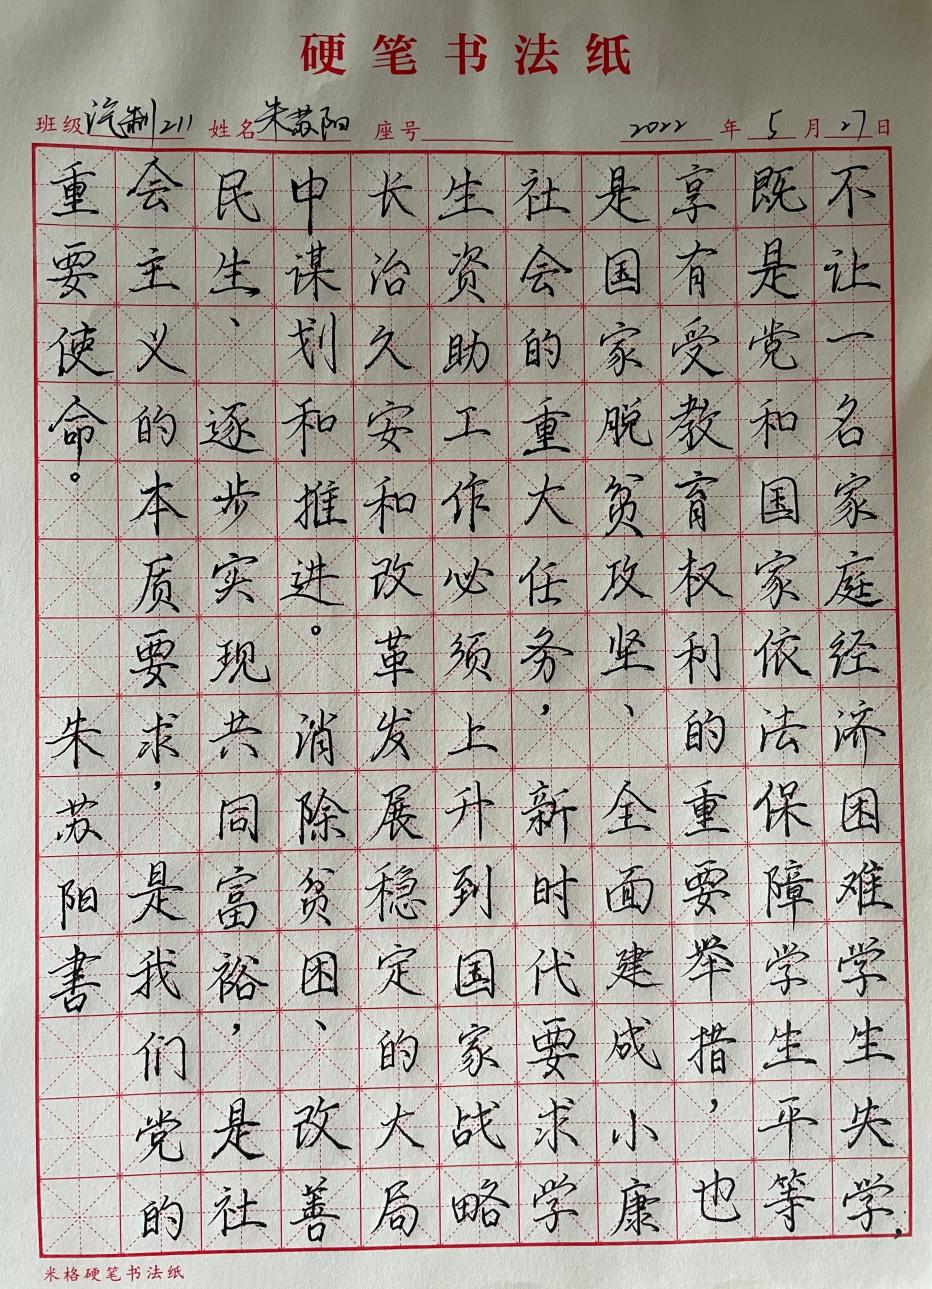 硬笔书法纸
班级 汽制211 姓名 朱苏阳 座号 2022年5月27日
不让一名家庭经济困难学生失学，
既是党和国家依法保障学生平等
享有受教育权利的重要举措，也
是国家脱贫攻坚、全面建成小康
社会的重大任务，新时代要求学
生资助工作必须上升到国家战略
长治久安和改革发展稳定的大局
中谋划和推进。消除贫困、改善
民生、逐步实现共同富裕，是社
会主义的本质要求，是我们党的
重要使命。
朱苏阳書
米格硬笔书法纸